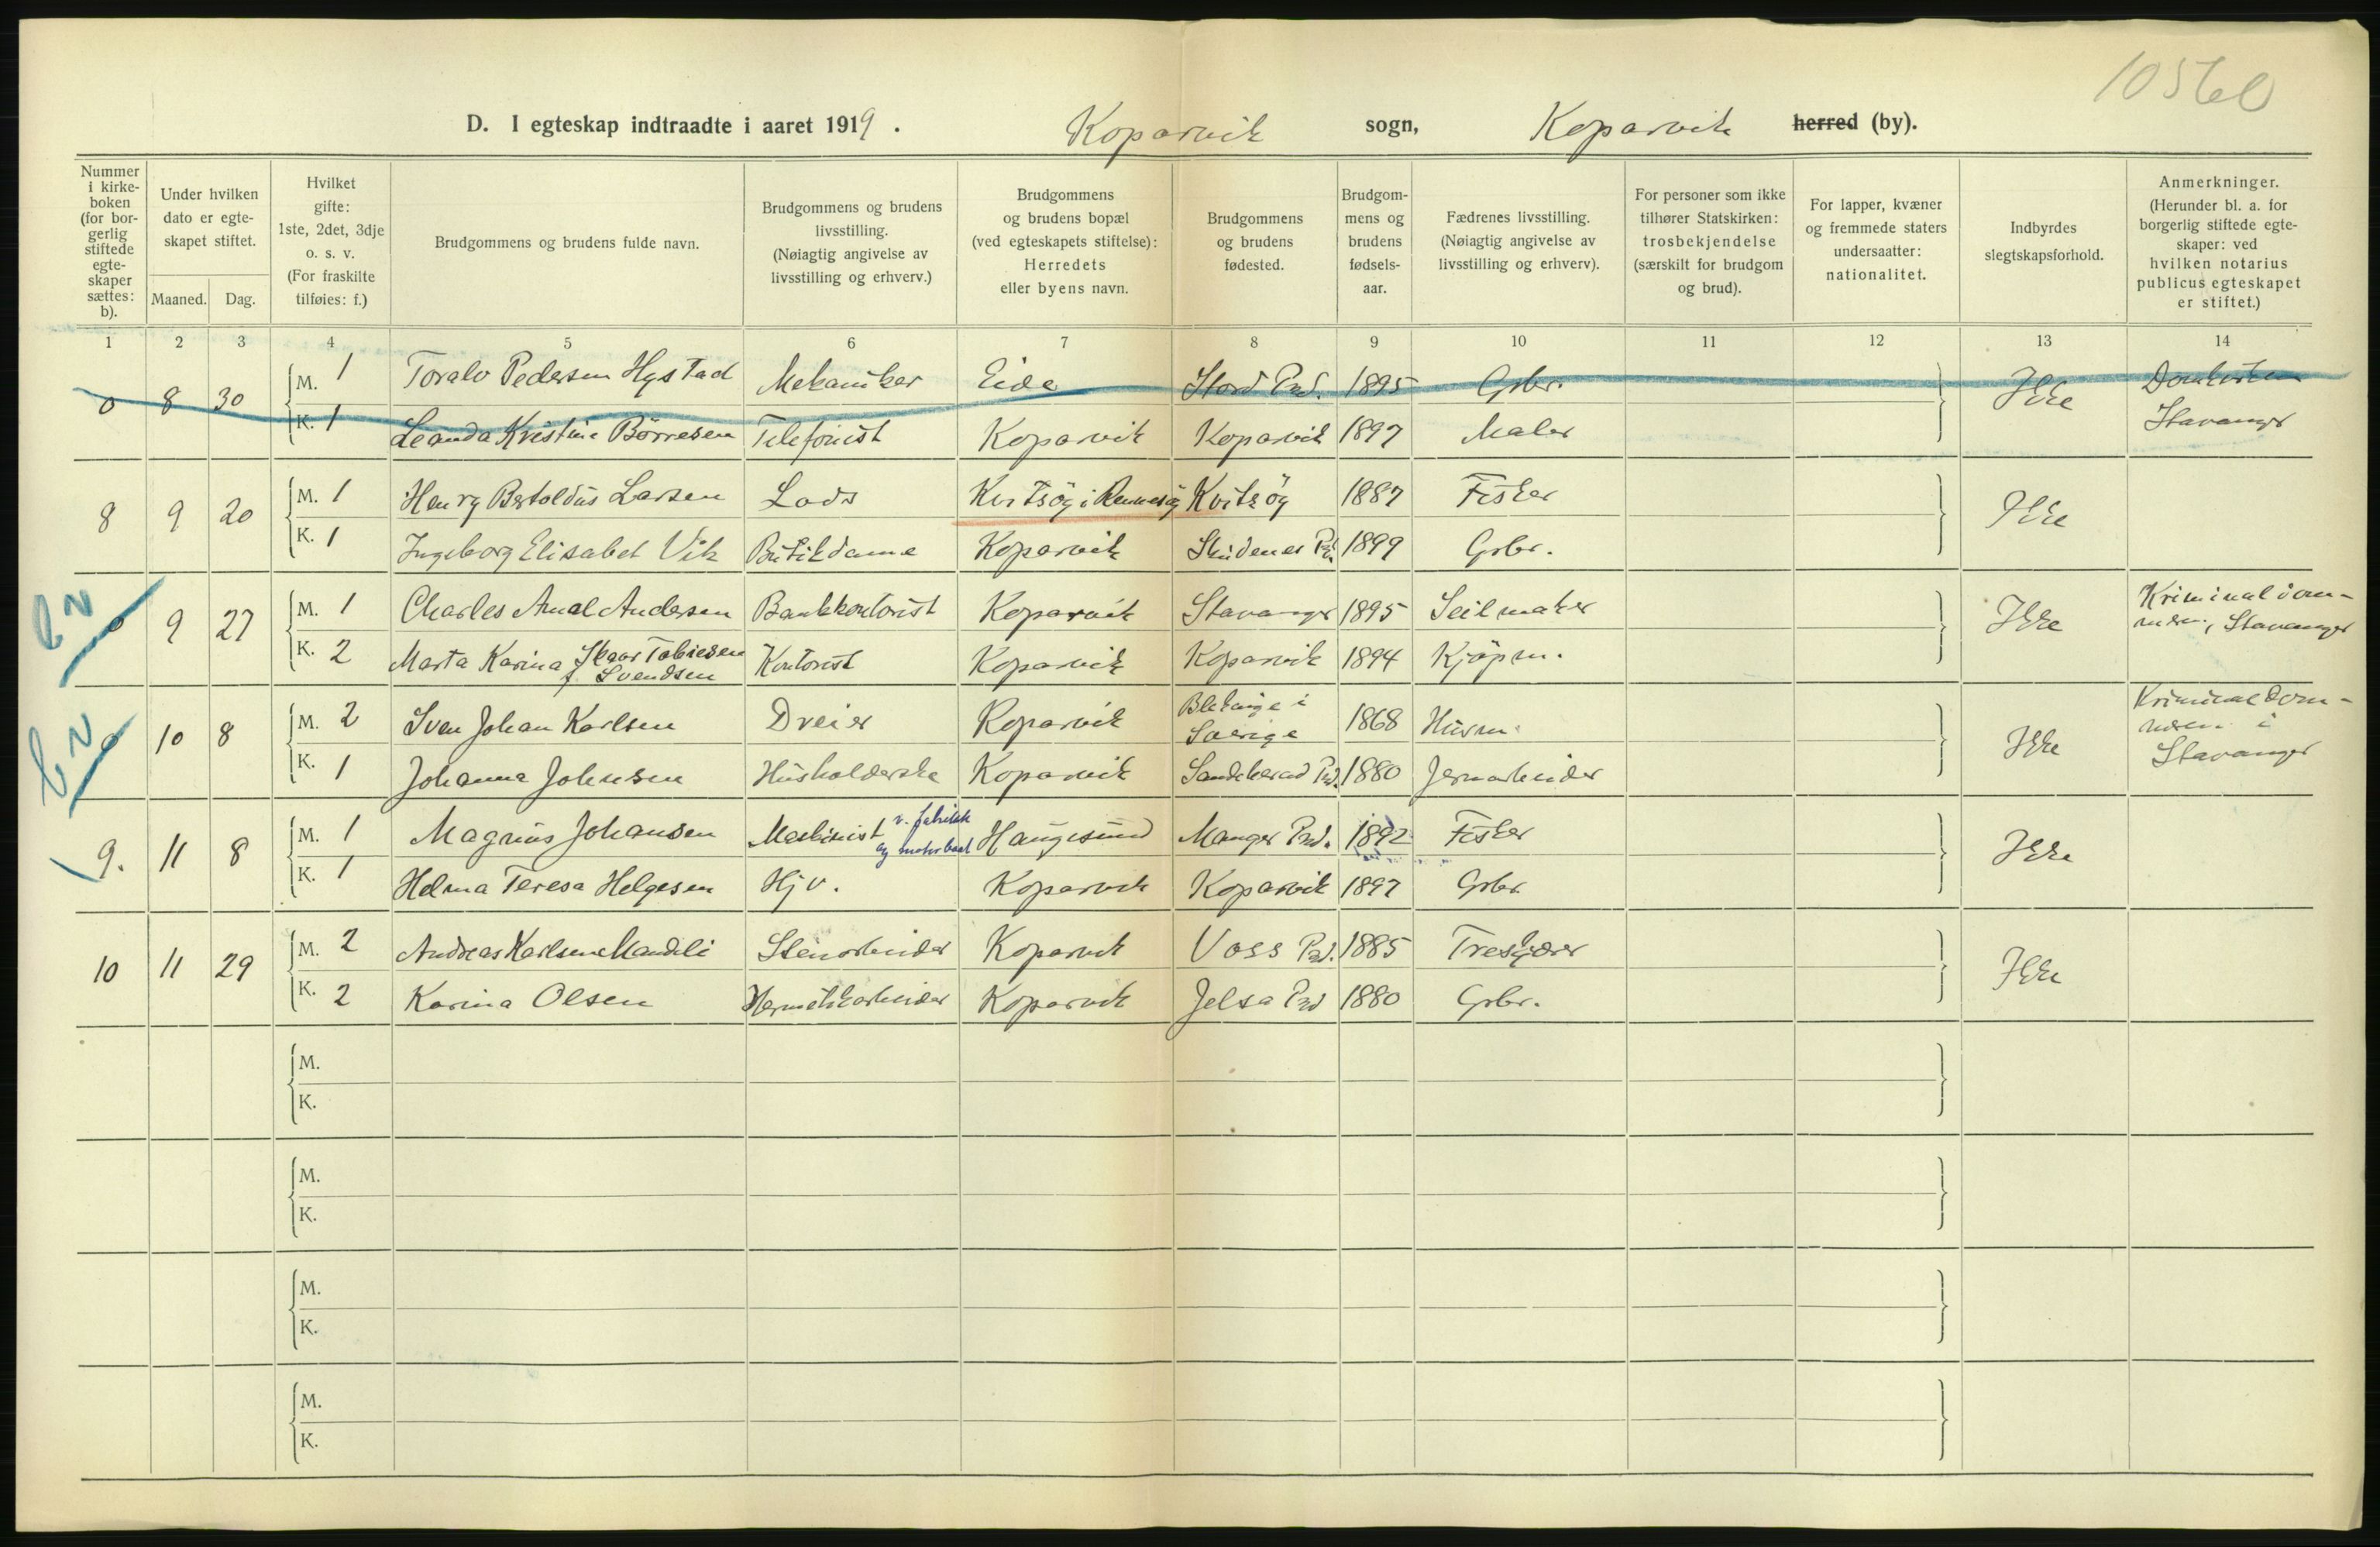 10560
D. I egteskap indtraadte i aaret 1919. Koparvik sogn, Koparvik herred (by).
Nummer i kirke-boken (for bor-gerlig stiftede egte-skaper sættes: b).
Under hvilken dato er egte-skapet stiftet.
Maaned. Dag.
Hvilket gifte: 1ste, 2det, 3dje o. s. v. (For fraskilte tilføies: f.)
Brudgommens og brudens fulde navn.
Brudgommens og brudens livsstilling. (Nøiagtig angivelse av livsstilling og erhverv.)
Brudgommens og brudens bopæl (ved egteskapets stiftelse): Herredets eller byens navn.
Brudgommens og brudens fødested.
Brudgom-mens og brudens fødsels-aar.
Fædrenes livsstilling. (Nøiagtig angivelse av livsstilling og erhverv).
For personer som ikke tilhører Statskirken: trosbekjendelse (særskilt for brudgom og brud).
For lapper, kvæner og fremmede staters undersaatter: nationalitet.
Indbyrdes slegtskapsforhold.
Anmerkninger. (Herunder bl. a. for borgerlig stiftede egte-skaper: ved hvilken notarius publicus egteskapet er stiftet.)
1 2 3 4 5 6 7 8 9 10 11 12 13 14
0 8 30 M. 1 Toralv Pedersen Hystad Mekaniker Eide Stord Prd. 1895 Gbr. Ikke Domkirken
K. 1 Leanda Kristine Börresen Telefonist Koparvik Koparvik 1897 Maler Stavanger
8 9 20 M. 1 Henry Bertoldus Larsen Lods Kvitsöy i Rennesöy Kvitsöy 1887 Fisker Ikke
K. 1 Ingeborg Elisabet Vik Butikdame Koparvik Skudenes Prd. 1899 Gbr.
0 9 27 M. 1 Charles Andersen Bankkontorist Koparvik Stavanger 1895 Seilmaker Ikke Kriminaldom-
meren, Stavanger
K. 2 Marta Karina Skaar Tobiesen
f. Svendsen Kontorist Koparvik Koparvik 1894 Kjöpm.
0 10 8 M. 2 Sven Johan Karlsen Dreier Koparvik Blekinge i
Sverige 1868 Husm. Ikke Kriminaldom-
meren i
Stavanger
K. 1 Johanna Johnsen Husholderske Koparvik Sandeherad Prd. 1880 Jernarbeider
9. 11 8 M. 1 Magnus Johansen Maskinist v. fabrikk
og motorbaat Haugesund Manger Prd. 1892 Fisker Ikke
K. 1 Helma Teresa Helgesen Hjv. Koparvik Koparvik 1897 Gbr.
10 11 29 M. 2 Andreas Karlsen Mandeli Stenarbeider Koparvik Voss Prd. 1885 Treskjærer Ikke
K. 2 Karina Olsen Hermetikkarbeider Koparvik Jelsa Prd 1880 Gbr.
M.
K.
M.
K.
M.
K.
M.
K.